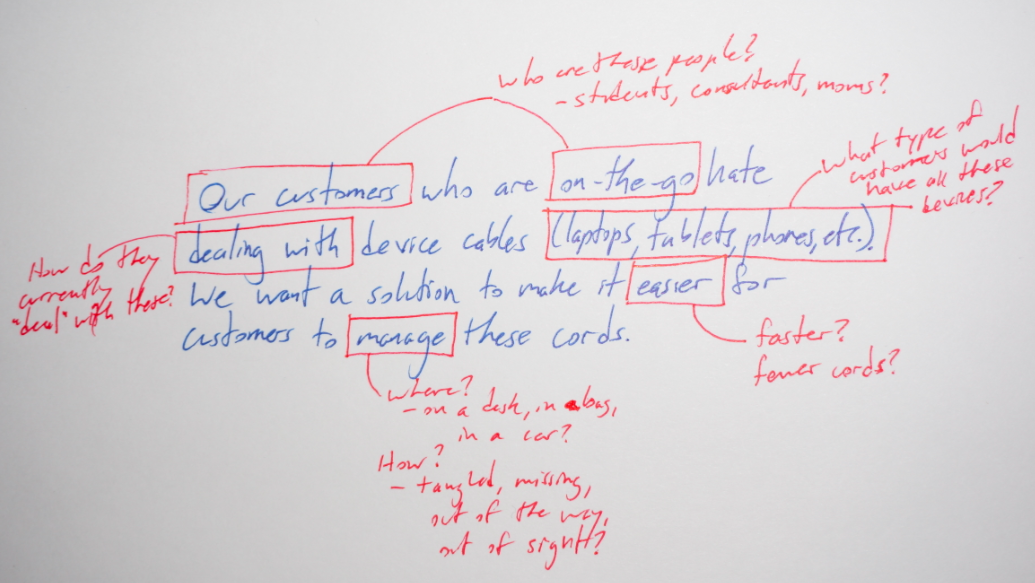 who are these people?
- students, consultants, moms?
what type of
customers would
have all these
devices?
Our customers who are on-the-go hate
dealing with device cables (laptops, tablets, phones, etc.).
We want a solution to make it easier for
customers to manage these cords.
How do they
currently
"deal" with these?
faster?
fewer cords?
where?
- on a desk, in a bag,
in a car?
How?
- tangled, missing,
out of the way,
out of sight?